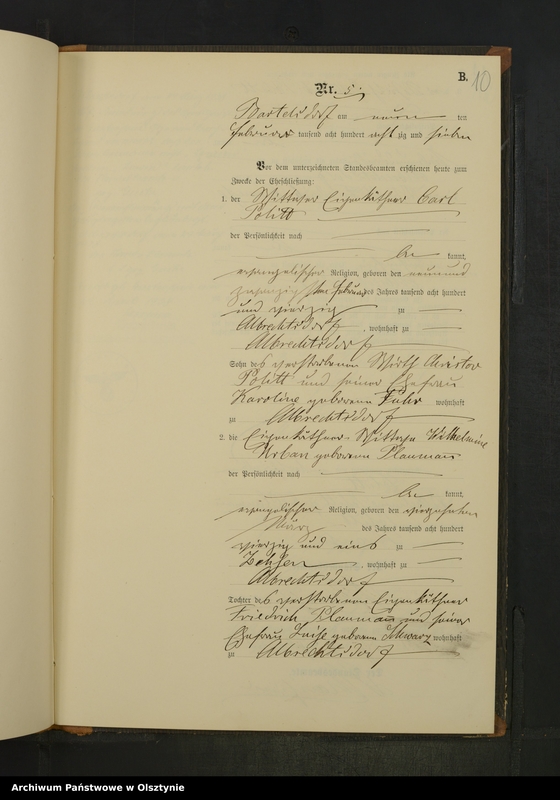 B.
10
Nr. 5.
Bartelsdorf am neun ten
Februar tausend acht hundert acht zig und sieben
Vor dem unterzeichneten Standesbeamten erschienen heute zum
Zwecke der Eheschließung:
1. der Wittwer Eigenkäthner Carl
Politt
der Persönlichkeit nach
be kannt,
evangelischer Religion, geboren den neunund
zwanzigsten Februar des Jahres tausend acht hundert
und vierzig zu
Albrechtsdorf, wohnhaft zu
Albrechtsdorf
Sohn des verstorbenen Wirth Christof
Politt und seiner Ehefrau
Karoline geborenen Fuhr wohnhaft
zu Albrechtsdorf
2. die Eigenkäthner-Wittwe Wilhelmine
Urban geborene Plaumann
der Persönlichkeit nach
be kannt,
evangelischer Religion, geboren den vierzehnten
März des Jahres tausend acht hundert
vierzig und eins zu
, wohnhaft zu
Albrechtsdorf
Tochter des verstorbenen Eigenkäthner
Friedrich Plaumann und seiner
Ehefrau Luise geborenen Schwarz wohnhaft
zu Albrechtsdorf
Archiwum Państwowe w Olsztynie